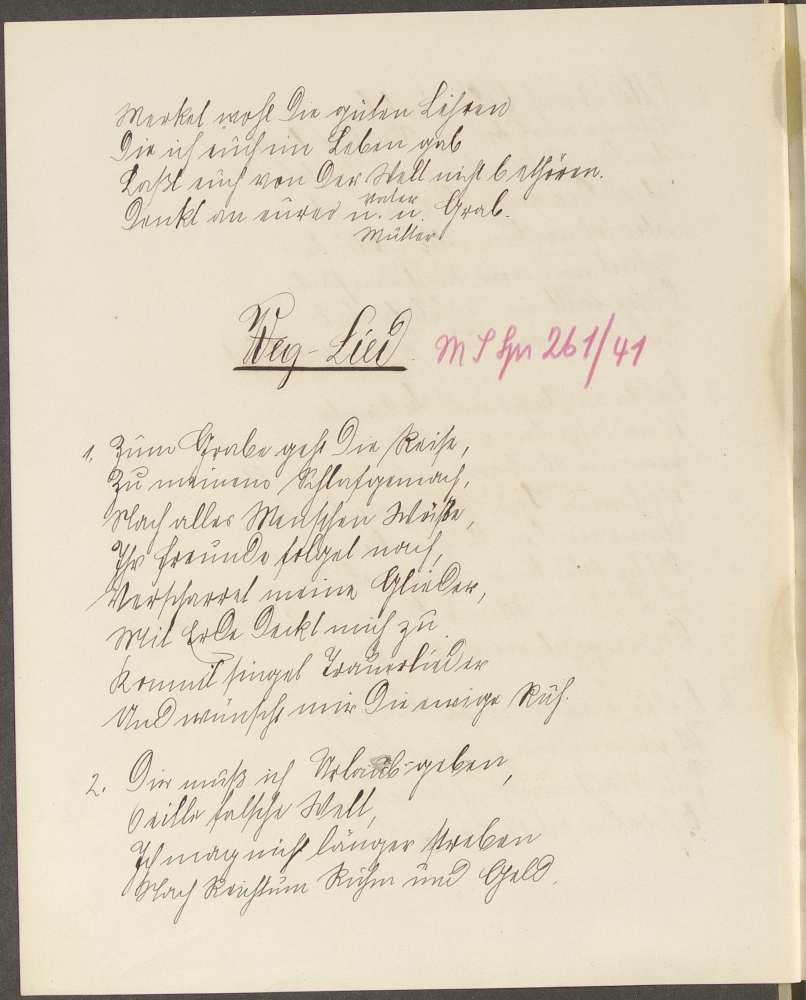 Merket wohl Die guten Lehren
Die ich euch im Leben gab
Laßt euch von Der Welt nicht bethören.
Denkt an eures Vater
u. u. Grab.
Mutter
Weg-Lied. M S Spr 261/41
1. Zum Grabe geht Die Reise,
Zu meinem Schlafgemach,
Nach aller Menschen Weise,
Ihr Freunde folget nach,
Verscharret meine Glieder,
Mit Erde Deckt mich zu
Kommt singet Trauerlieder
Und wünscht mir Die ewige Ruh.
2. Dir muß ich Urlaub-geben,
O eitle falsche Welt,
Ich mag nicht länger streben
Nach Reichtum Ruhm und Geld.